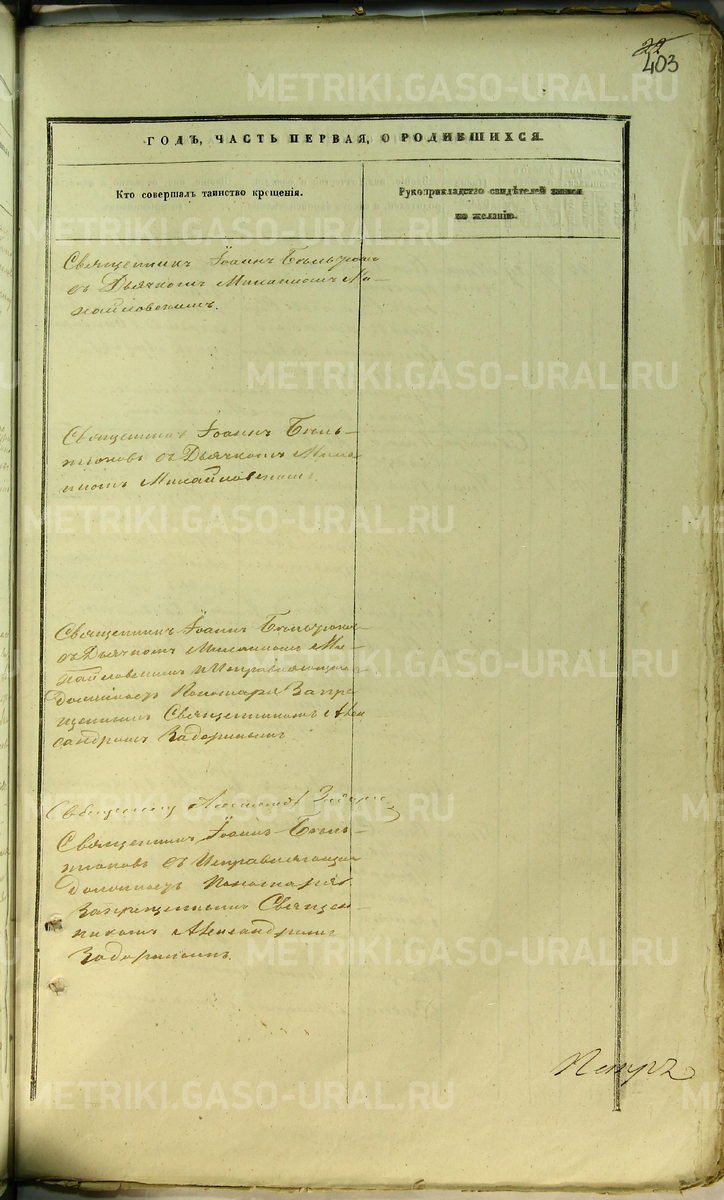 22
403
METRIKI.GASO-URAL.RU
ГОДЪ, ЧАСТЬ ПЕРВАЯ, О РОДИВШИХСЯ.
Кто совершалъ таинство крещенія.
Рукоприкладство свидѣтелей записи
по желанію.
Священникъ Іоаннъ
съ Дьячкомъ Ми-
хайловскимъ.
Священникъ Іоаннъ Бѣль-
тюковъ съ Дьячкомъ
Михайловскимъ.
Священникъ Іоаннъ
съ Дьячкомъ Ми-
хайловскимъ и Исправляющимъ
Должность Пономаря Запре
щеннымъ Священникомъ Алек
сандромъ Задоринымъ
Священникъ Іоаннъ Бѣль-
тюковъ съ Исправляющимъ
Должность Пономаря
Запрещеннымъ Священ-
никомъ Александромъ
Задоринымъ.
Петръ